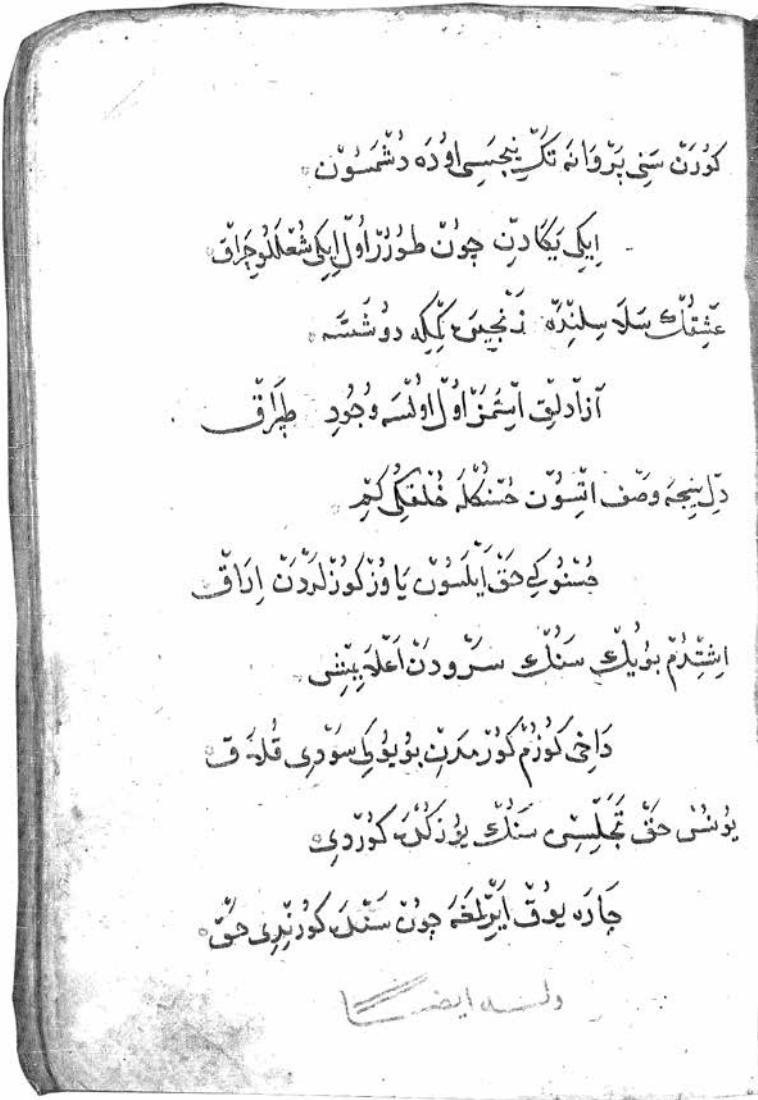 كُورَنْ سَنِي پَرْوَانَه تَكْ نِيجَسِي اُودَه دُشْمَسُونْ
اِيكِي يَڭَادَنْ چُونْ طُورُرْ اُولْ اِيكِي شُعْلَلُو چِرَاقْ
عَشِقُڭْ سَلَاسِلِنْدَه زَنْجِيرَه كِمْكِه دُوشَسَه
آزَادلِقْ اِسْتَمَزْ اُولْ اُولْسَه وُجُودِ طُپْرَاقْ
دِلْ نِيجَه وَصْفْ اتْسُونْ حُسْنُڭلَه خُلْقُڭِي كِمْ
حُسْنُوڭِي حَقْ اَيْلَسُونْ يَاوُزْ كُوزْلَرْدَنْ اِرَاقْ
اِشِتْدُمْ بُويُڭْ سَنُڭْ سَرْودَنْ اَعْلَا بِتْمِشْ
دَاخِي كُوزُمْ كُورْمَدِنْ بُويُوڭِي سَوْدِي قُلَاقْ
يُونُسْ حَقْ تَجَلِّيسِنْ سَنُڭْ يُوزُڭْدَه كُورْدِي
چَارَه يُوقْ اَيْرِلْمَغَه چُونْ سَنْدَه كُورِنْدِي حَقْ
وله ايضا